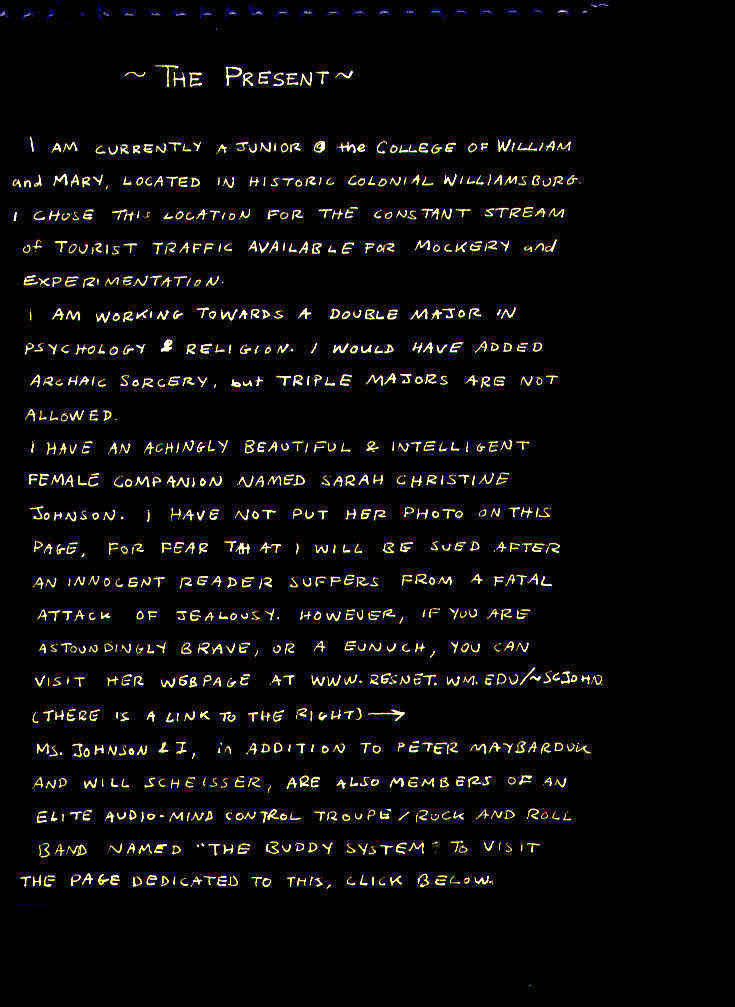 ~ THE PRESENT ~
I AM CURRENTLY A JUNIOR @ the COLLEGE OF WILLIAM
and MARY, LOCATED IN HISTORIC COLONIAL WILLIAMSBURG.
I CHOSE THIS LOCATION FOR THE CONSTANT STREAM
of TOURIST TRAFFIC AVAILABLE FOR MOCKERY and
EXPERIMENTATION.
I AM WORKING TOWARDS A DOUBLE MAJOR IN
PSYCHOLOGY & RELIGION. I WOULD HAVE ADDED
ARCHAIC SORCERY, but TRIPLE MAJORS ARE NOT
ALLOWED.
I HAVE AN ACHINGLY BEAUTIFUL & INTELLIGENT
FEMALE COMPANION NAMED SARAH CHRISTINE
JOHNSON. I HAVE NOT PUT HER PHOTO ON THIS
PAGE, FOR FEAR THAT I WILL BE SUED AFTER
AN INNOCENT READER SUFFERS FROM A FATAL
ATTACK OF JEALOUSY. HOWEVER, IF YOU ARE
ASTOUNDINGLY BRAVE, OR A EUNUCH, YOU CAN
VISIT HER WEBPAGE AT WWW.RESNET.WM.EDU/~SCJOHN
(THERE IS A LINK TO THE RIGHT) →
MS. JOHNSON & I, in ADDITION TO PETER MAYBARDUK
AND WILL SCHEISSER, ARE ALSO MEMBERS OF AN
ELITE AUDIO-MIND CONTROL TROUPE / ROCK AND ROLL
BAND NAMED "THE BUDDY SYSTEM." TO VISIT
THE PAGE DEDICATED TO THIS, CLICK BELOW.